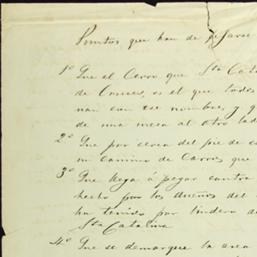 Puntos que han de fijarse
1º Que el Cerro que Sta Cata
de es el que todos
nan con ese nombre, y q
de una mesa al otro lad
2º Que por cerca del pie de e
un camino de Carros que
3º Que llega á pegar contra
hecho por los dueños del
ha tenido por lindero d
Sta Catalina
4º Que se demarque la area